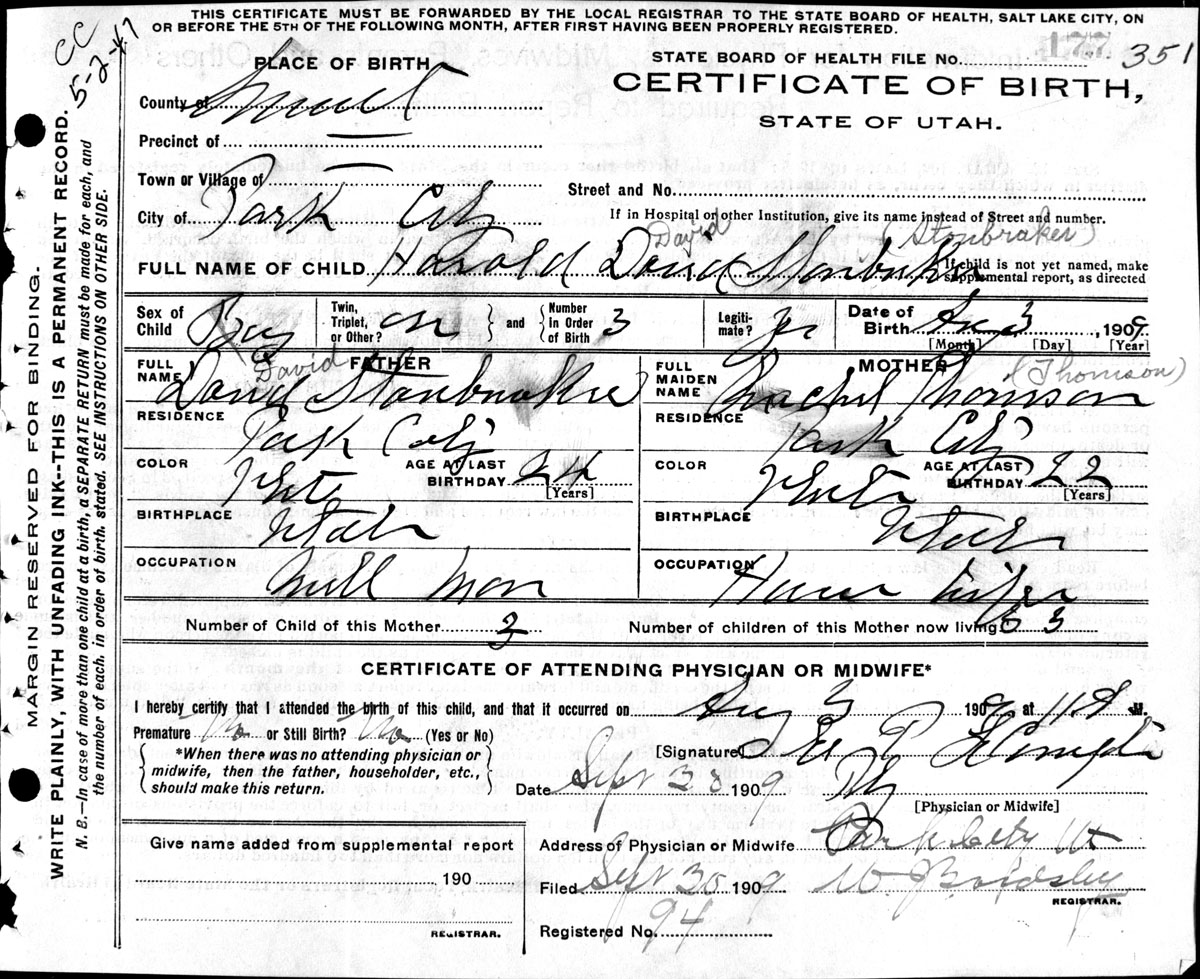 THIS CERTIFICATE MUST BE FORWARDED BY THE LOCAL REGISTRAR TO THE STATE BOARD OF HEALTH, SALT LAKE CITY, ON
OR BEFORE THE 5TH OF THE FOLLOWING MONTH, AFTER FIRST HAVING BEEN PROPERLY REGISTERED.
CC
5-2-47
PLACE OF BIRTH
STATE BOARD OF HEALTH FILE No. 177 351
County of Summit
CERTIFICATE OF BIRTH,
STATE OF UTAH.
Precinct of
Town or Village of
Street and No.
City of Park City
If in Hospital or other Institution, give its name instead of Street and number.
David (Stonbraker)
FULL NAME OF CHILD Harold David Stonbraker
If child is not yet named, make supplemental report, as directed
Sex of Child Boy
Twin, Triplet, or Other? one and Number in Order of Birth 3
Legitimate? Yes
Date of Birth Aug 3, 1909
[Month] [Day] [Year]
FATHER
FULL NAME David Stonbraker
David
RESIDENCE Park City
COLOR White AGE AT LAST BIRTHDAY
[Years]
BIRTHPLACE Utah
OCCUPATION Mill Man
MOTHER
FULL MAIDEN NAME Rachel Thomson
(Thomison)
RESIDENCE Park City
COLOR White AGE AT LAST BIRTHDAY 22
[Years]
BIRTHPLACE Utah
OCCUPATION House Wife
Number of Child of this Mother 3
Number of children of this Mother now living 3
CERTIFICATE OF ATTENDING PHYSICIAN OR MIDWIFE*
I hereby certify that I attended the birth of this child, and that it occurred on Aug 3 1909, at 11 P. M.
Premature No or Still Birth? No (Yes or No)
*When there was no attending physician or midwife, then the father, householder, etc., should make this return.
[Signature]
Date Sept 1909
[Physician or Midwife]
Give name added from supplemental report
190
REGISTRAR.
Address of Physician or Midwife Park City Ut
Filed Sept 30 1909
REGISTRAR.
Registered No. 94
MARGIN RESERVED FOR BINDING.
WRITE PLAINLY, WITH UNFADING INK--THIS IS A PERMANENT RECORD.
N. B.—In case of more than one child at a birth, a SEPARATE RETURN must be made for each, and
the number of each, in order of birth, stated. SEE INSTRUCTIONS ON OTHER SIDE.